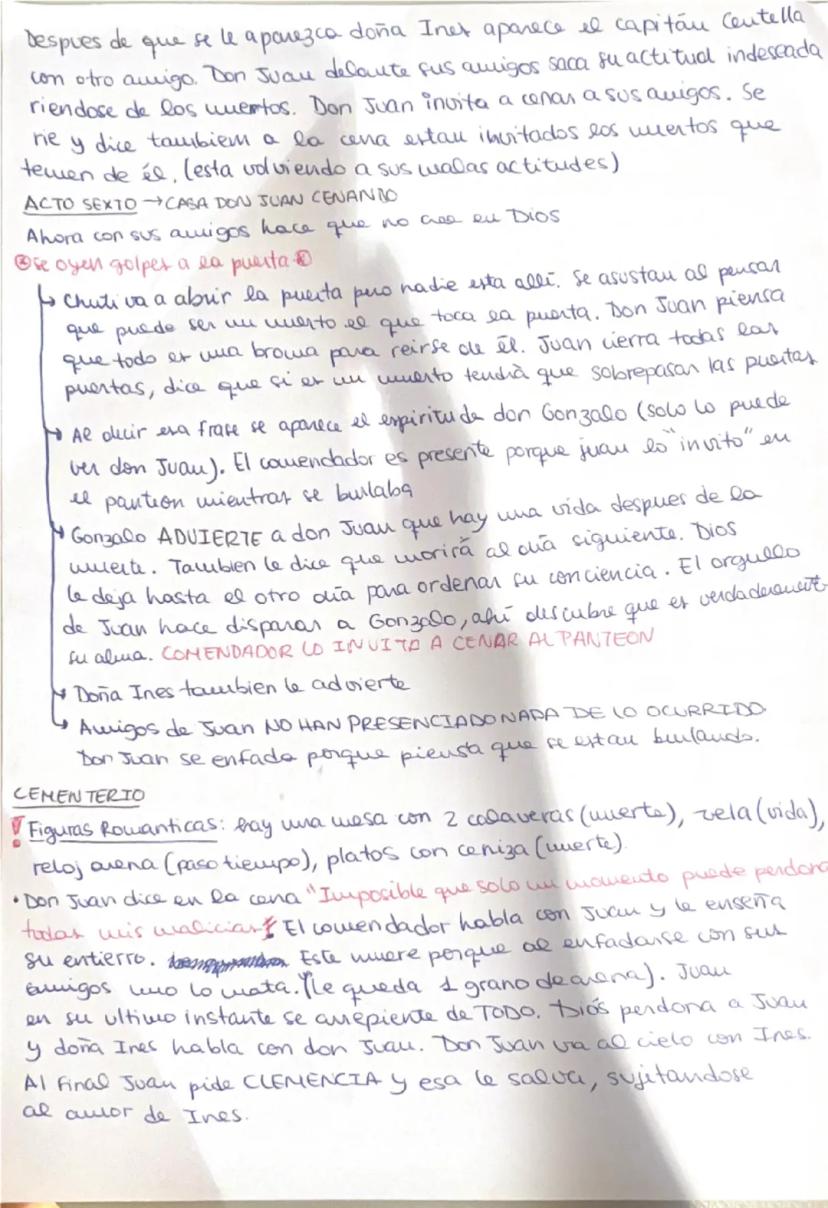 Despues de que se le aparezca doña Ines aparece el capitán Centella
con otro amigo. Don Juan delante sus amigos saca su actitual indeseada
riendose de los muertos. Don Juan invita a cenar a sus amigos. Se
rie y dice tambiem a la cena estan invitados los muertos que
temen de él. (esta volviendo a sus malas actitudes)
ACTO SEXTO → CASA DON JUAN CENANDO
Ahora con sus amigos hace que no cree en Dios
se oyen golpes a la puerta
↳ Chuti va a abrir la puerta pero nadie esta allí. Se asustan al pensar
que puede ser un muerto el que toca la puerta. Don Juan piensa
que todo es una broma para reirse de él. Juan cierra todas las
puertas, dice que si es un muerto tendrá que sobrepasar las puertas
→ Al decir esa frase se aparece el espiritu de don Gonzalo (solo lo puede
ver don Juan). El comendador es presente porque juan lo "invito" en
el panteon mientras se burlaba
→ Gonzalo ADVIERTE a don Juan que hay una vida despues de la
muerte. Tambien le dice que morirá al día siguiente. Dios
le deja hasta el otro día para ordenar su conciencia. El orgullo
de Juan hace disparar a Gonzalo, ahí descubre que es verdaderament
su alma. COMENDADOR LO INVITA A CENAR AL PANTEON
→ Doña Ines tambien le advierte
↳ Amigos de Juan NO HAN PRESENCIADO NADA DE LO OCURRIDO.
Don Juan se enfada porque piensa que se estan burlando.
CEMENTERIO
! Figuras Romanticas: hay una mesa con 2 calaveras (muerte), vela (vida),
reloj arena (paso tiempo), platos con ceniza (muerte).
• Don Juan dice en la cena "Imposible que solo un momento puede perdona
todas mis malicias" El comendador habla con Juan y le enseña
su entierro. Este muere porque al enfadarse con sus
amigos uno lo mata. (le queda 1 grano de arena). Juan
en su ultimo instante se arrepiente de TODO. Diós perdona a Juan
y doña Ines habla con don Juan. Don Juan va al cielo con Ines.
Al final Juan pide CLEMENCIA y esa le salva, sujitandose
al amor de Ines.